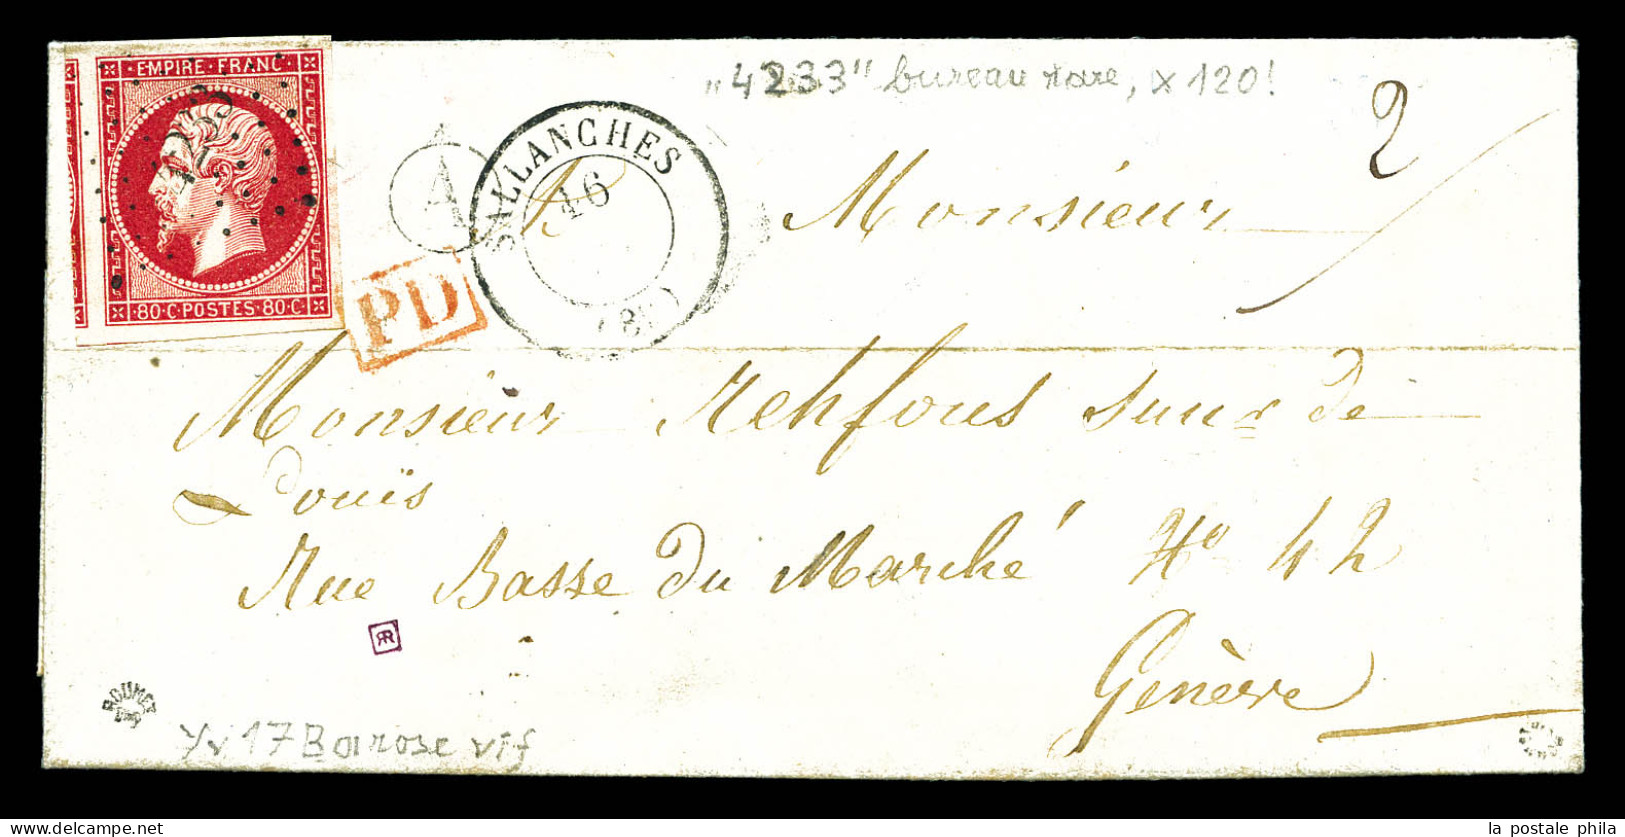 „4233" bureau rare, x 120!
EMPIRE · FRANC ·
4233
· 80 · C · POSTES · 80 · C ·
A
PD
SALLANCHES
16
2
A Monsieur
Monsieur Rehfous
de
Louis
Rue Basse du Marché No 42
Genève
RR
ROUMET
Yv 17Ba rose vif
la postale phila